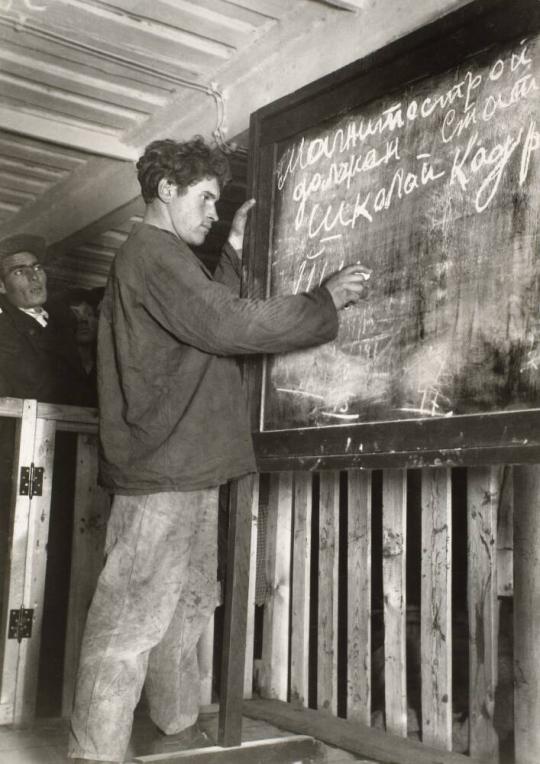 Магнитострой
должен Стат
Школай Кадр